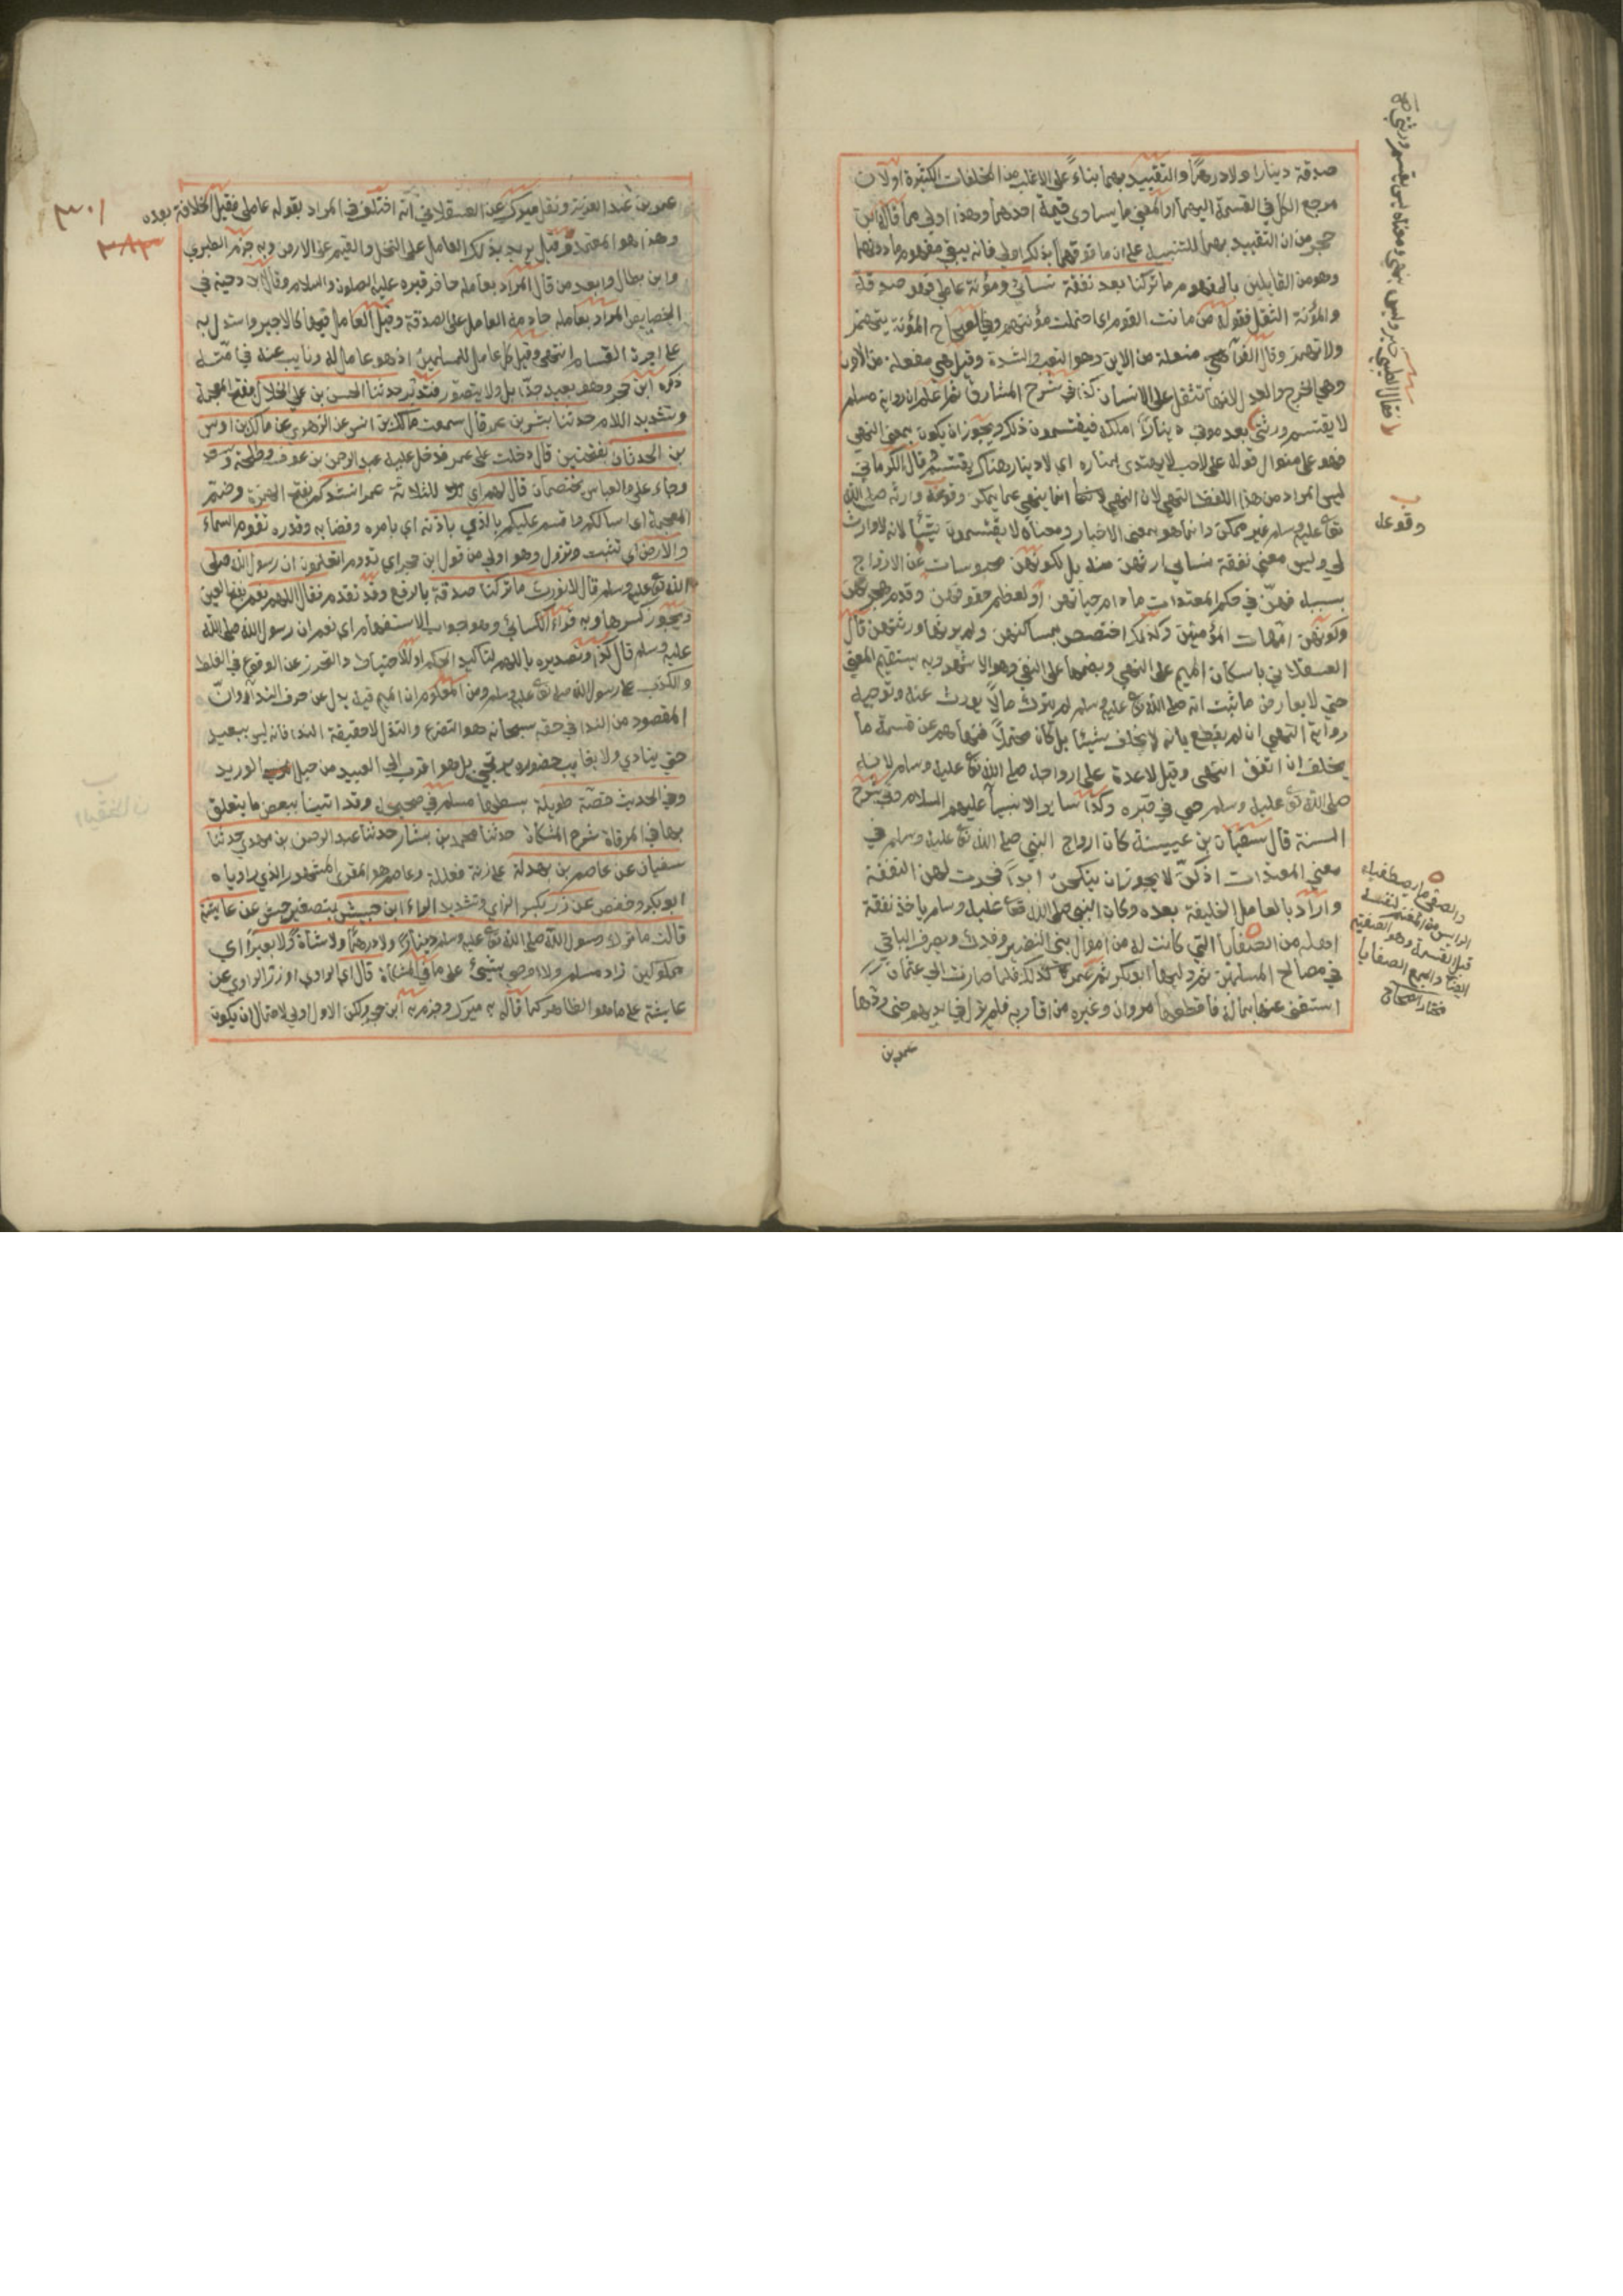 صدقة دينارا ولا درهما والتقييد بهما بناء على الاغلب من المخلفات الكثيرة اولان
مرجع الكل في القسمة اليهما او المعنى ما يساوى قيمة احدهما وهذا اولى مما قال ابن
حجر من ان التقييد بهما للتنبيه على ان ما فوقهما بذلك اولى فانه يبقى مفهوم ما دونهما
وهو من القايلين بالمفهوم ما تركنا بعد نفقة نسائي ومؤنة عاملي فهو صدقة
والمؤنة الثقل فعولة من مانت القوم اى احتملت مؤنتهم وفي الصحاح المؤنة يتهمز
ولا تهمز وقال الفرآ هي مفعلة من الاين وهو التعب والشدة وقيل هي مفعلة من الاون
وهي الخرج والعدل لانها تثقل على الانسان كذا في شرح المشارق ثم اعلم ان رواية مسلم
لا يقتسم ورثتي بعد موتي دينارا اى املكه فيقتسمون ذلك ويجوز ان يكون بمعنى النهي
فهو على منوال قوله على لاحب لا يهتدى بمناره اى لا دينار هناك يقتسم قال الكرماني
ليس المراد من هذا اللفظ النهي لان النهي انما ينهى عما يمكن وقوعه وارثه صلى الله
تعا عليه وسلم غير ممكن وانما هو بمعنى الاخبار ومعناه لا يقتسمون شيئا لانه لا وارث
لي وليس معنى نفقة نسايى ارثهن منه بل لكونهن محبوسات عن الازواج
بسببه فهن في حكم المعتدات ما دام حياتهن او لعظم حقوقهن وقدم هجرتهن
وكونهن امهات المؤمنين وكذلك اختصصن بمساكنهن ولم يرثها ورثتهن قال
العسقلاني باسكان الميم على النهي وبضمها على النفي وهو الاشهر وبه يستقيم المعنى
حتى لا يعارض ما ثبت انه صلى الله تعا عليه وسلم لم يترك مالا يورث عنه وتوجيه
رواية النهي انه لم يقطع بانه لا يخلف شيئا بل كان محتملا فنهاهم عن قسمة ما
يخلف ان اتفق انتهى وقيل لا عدة على ازواجه صلى الله تعا عليه وسلم لانه
صلى الله تعا عليه وسلم حي في قبره وكذا ساير الانبيآ عليهم السلام وفي شرح
السنة قال سفيان بن عيينة كان ازواج النبي صلى الله تعا عليه وسلم في
معنى المعتدات اذ كن لا يجوز ان ينكحن ابدا فجرت لهن النفقة
واراد بالعامل الخليفة بعده وكان النبي صلى الله تعا عليه وسلم ياخذ نفقة
اهله من الصفايا التي كانت له من اموال بنى النضير وفدك ويصرف الباقي
في مصالح المسلمين ثم وليها ابو بكر ثم عمر كذلك فلما صارت الى عثمان
استغنى عنها بماله فاقطعها مروان وغيره من اقاربه فلم تزل في ايديهم حتى ردها
عمر بن
وقوعه
والصفى ما يصطفيه
الرايس من المغنم لنفسه
قبل القسمة وهو الصفية
ايضا والجمع الصفايا
مختار الصحاح
عمر بن عبد العزيز ونقل ميرك عن العسقلاني انه اختلف في المراد بقوله عاملي فقيل الخلافة بعده
وهذا هو المعتمد وقيل يريد بذلك العامل على النخل والقيم على الارض وبه جزم الطبري
وابن بطال وابعد من قال المراد بعامله حافر قبره عليه الصلوة والسلام وقال ابن دحية في
الخصايص المراد بعامله خادمه العامل على الصدقة وقيل العامل فيها كالاجير واستدل به
على اجرة القسام انتهى وقيل كل عامل للمسلمين اذ هو عامل له ونايب عنه في امته
ذكره ابن حجر وهو بعيد جدا بل ولا يتصور فتدبر حدثنا الحسن بن علي الخلال بفتح المعجمة
وتشديد اللام حدثنا بشر بن عمر قال سمعت مالك بن انس عن الزهرى عن مالك بن اوس
بن الحدثان بفتحتين قال دخلت على عمر فدخل عليه عبد الرحمن بن عوف وطلحة وسعد
وجاء علي والعباس يختصمان فقال لهم اى للثلاثة عمر انشدكم بفتح الهمزة وضم
المعجمة اى اسالكم واقسم عليكم بالذي باذنه اى بامره وقضايه وقدره تقوم السماء
والارض اى تثبت ولا تزول وهو اولى من قول ابن حجر اى تدوم اتعلمون ان رسول الله صلى
الله تعا عليه وسلم قال لا نورث ما تركنا صدقة بالرفع وقد تقدم فقالوا اللهم نعم بفتح العين
ويجوز كسرها وبه قراء الكسائي وهو جواب الاستفهام اى نعم ان رسول الله صلى الله
عليه وسلم قال كذا وتصديره باللهم لتاكيد الحكم او للاحتياط والتحرز عن الوقوع في الغلط
والكذب على رسول الله صلى الله تعا عليه وسلم ومن المعلوم ان الميم فيه بدل عن حرف الندآ وان
المقصود من الندا في حقه سبحانه هو التضرع والتذلل لا حقيقة الندا فانه ليس ببعيد
حتى ينادي ولا بغايب حضوره يرتجى بل هو اقرب الى العبيد من حبل الوريد
وفي الحديث قصة طويلة بسطها مسلم في صحيحه وقد اتينا ببعض ما يتعلق
بها في المرقاة شرح المشكاة حدثنا محمد بن بشار حدثنا عبد الرحمن بن مهدي حدثنا
سفيان عن عاصم بن بهدلة على زنة فعللة وعاصم هو المقرى المشهور الذي راوياه
ابو بكر وحفص عن زر بكسر الزاي وتشديد الراء ابن حبيش بتصغير حبش عن عايشة
قالت ما ترك رسول الله صلى الله تعا عليه وسلم دينارا ولا درهما ولا شاة ولا بعيرا اى
مملوكين زاد مسلم ولا اوصى بشيئ على ما في المشكاة قال اى الراوي او زر الراوي عن
عايشة على ما هو الظاهر كما قال به ميرك وجزم به ابن حجر ولكن الاول اولى لاحتمال ان يكون
٣٠١